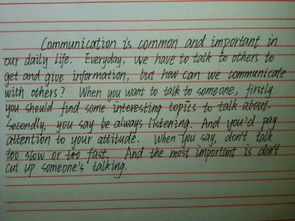 Communication is common and important in
our daily life. Everyday, we have to talk to others to
get and give information, but how can we communicate
with others? When you want to talk to someone, firstly
you should find some interesting topics to talk about.
Secondly, you say be always listening. And you'd pay
attention to your attitude. When you say, don't talk
too slow or too fast. And the most important is don't
cut up someone's talking.